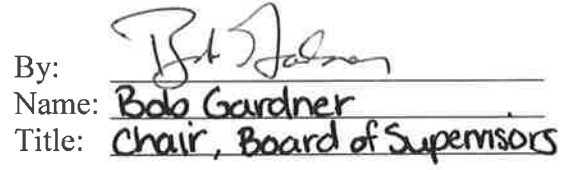 By: Bob Gardner
Name: Bob Gardner
Title: Chair, Board of Supervisors